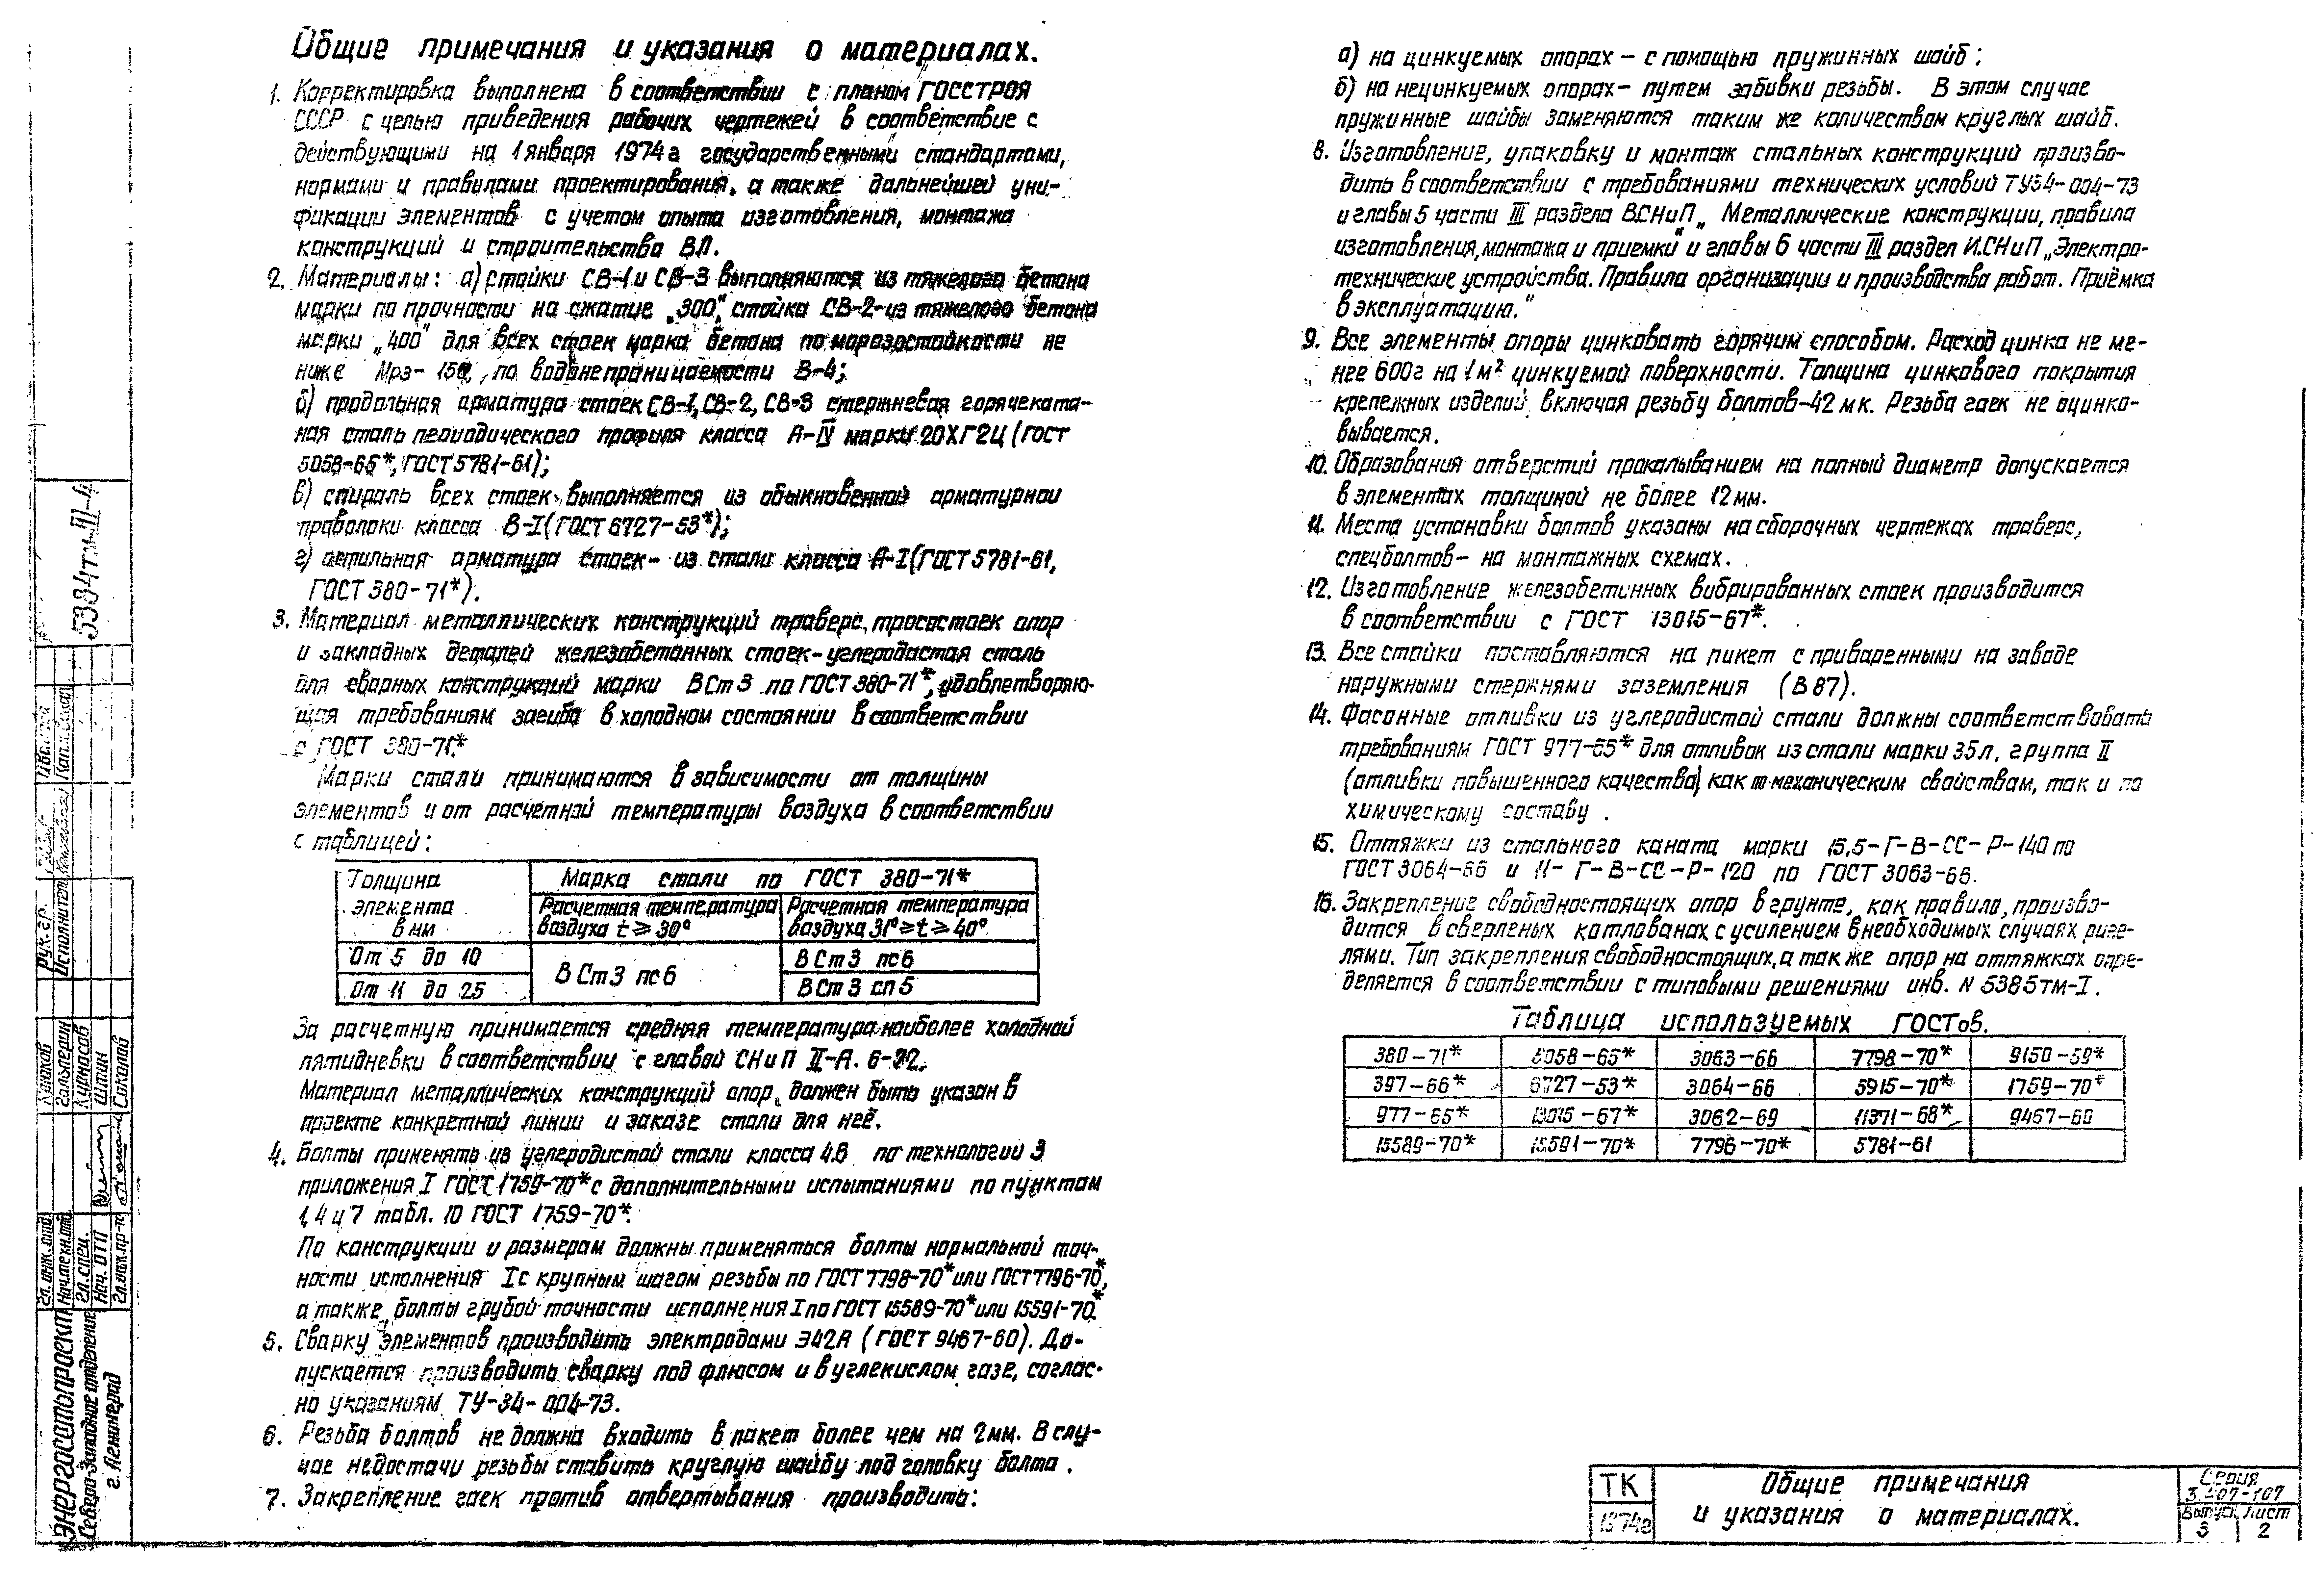 Общие примечания и указания о материалах.
1. Корректировка выполнена в соответствии с планом ГОССТРОЯ
СССР с целью приведения рабочих чертежей в соответствие с
действующими на 1 января 1974 г государственными стандартами,
нормами и правилами проектирования, а также дальнейшей уни-
фикации элементов с учетом опыта изготовления, монтажа
конструкций и строительства ВЛ.
2. Материалы: а) стойки СВ-1 и СВ-3 выполняются из тяжелого бетона
марки по прочности на сжатие „300", стойка СВ-2-из тяжелого бетона
марки „400" для всех стоек марка бетона по морозостойкости не
ниже Мрз-150, по водонепроницаемости В-4;
б) продольная арматура стоек СВ-1, СВ-2, СВ-3 стержневая горячеката-
ная сталь периодического профиля класса А-IV марки 20ХГ2Ц (ГОСТ
5058-65*, ГОСТ 5781-61);
в) спираль всех стоек выполняется из обыкновенной арматурной
проволоки класса В-I (ГОСТ 6727-53*);
г) петильная арматура стоек- из стали класса А-I (ГОСТ 5781-61,
ГОСТ 380-71*).
3. Материал металлических конструкций траверс, тросостоек опор
и закладных деталей железобетонных стоек-углеродистая сталь
для сварных конструкций марки ВСт3 по ГОСТ 380-71*, удовлетворяю-
щая требованиям загиба в холодном состоянии в соответствии
с ГОСТ 380-71*.
Марки стали принимаются в зависимости от толщины
элементов и от расчетной температуры воздуха в соответствии
с таблицей:
Толщина элемента в мм
Марка стали по ГОСТ 380-71*
Расчетная температура воздуха t ⩾ 30°
Расчетная температура воздуха 31° ⩾ t ⩾ 40°
От 5 до 10
ВСт3 пс6
ВСт3 пс6
От 11 до 25
ВСт3 сп5
За расчетную принимается средняя температура наиболее холодной
пятидневки в соответствии с главой СНиП II-А. 6-72.
Материал металлических конструкций опор должен быть указан в
проекте конкретной линии и заказе стали для неё.
4. Болты применять из углеродистой стали класса 4.6 по технологии 3
приложения I ГОСТ 1759-70* с дополнительными испытаниями по пунктам
1,4 и 7 табл. 10 ГОСТ 1759-70*.
По конструкции и размерам должны применяться болты нормальной точ-
ности исполнения I с крупным шагом резьбы по ГОСТ 7798-70* или ГОСТ 7796-70*,
а также болты грубой точности исполнения I по ГОСТ 15589-70* или 15591-70*.
5. Сварку элементов производить электродами Э42А (ГОСТ 9467-60). До-
пускается производить сварку под флюсом и в углекислом газе, соглас-
но указаниям ТУ-34-004-73.
6. Резьба болтов не должна входить в пакет более чем на 2 мм. В слу-
чае недостачи резьбы ставить круглую шайбу под головку болта.
7. Закрепление гаек против отвертывания производить:
а) на цинкуемых опорах - с помощью пружинных шайб;
б) на нецинкуемых опорах- путем забивки резьбы. В этом случае
пружинные шайбы заменяются таким же количеством круглых шайб.
8. Изготовление, упаковку и монтаж стальных конструкций произво-
дить в соответствии с требованиями технических условий ТУ34-004-73
и главы 5 части III раздела В.СНиП „ Металлические конструкции, правила
изготовления, монтажа и приемки" и главы 6 части III раздел И.СНиП „Электро-
технические устройства. Правила организации и производства работ. Приёмка
в эксплуатацию."
9. Все элементы опоры цинковать горячим способом. Расход цинка не ме-
нее 600г на 1м² цинкуемой поверхности. Толщина цинкового покрытия
крепежных изделий, включая резьбу болтов-42 мк. Резьба гаек не оцинко-
вывается.
10. Образования отверстий прокалыванием на полный диаметр допускается
в элементах толщиной не более 12 мм.
11. Места установки болтов указаны на сборочных чертежах траверс,
спецболтов- на монтажных схемах.
12. Изготовление железобетонных вибрированных стоек производится
в соответствии с ГОСТ 13015-67*.
13. Все стойки поставляются на пикет с приваренными на заводе
наружными стержнями заземления (В87).
14. Фасонные отливки из углеродистой стали должны соответствовать
требованиям ГОСТ 977-65* для отливок из стали марки 35л, группа II
(отливки повышенного качества) как по механическим свойствам, так и по
химическому составу.
15. Оттяжки из стального каната марки 15,5-Г-В-СС-Р-140 по
ГОСТ 3064-66 и 11-Г-В-СС-Р-120 по ГОСТ 3063-66.
16. Закрепление свободностоящих опор в грунте, как правило, произво-
дится в сверленых котлованах с усилением в необходимых случаях риге-
лями. Тип закрепления свободностоящих, а так же опор на оттяжках опре-
деляется в соответствии с типовыми решениями инв. N 5385тм-I.
Таблица используемых ГОСТов.
380-71* 5058-65* 3063-66 7798-70* 9150-59*
397-66* 6727-53* 3064-66 5915-70* 1759-70*
977-65* 13015-67* 3062-69 11371-68* 9467-60
15589-70* 15591-70* 7796-70* 5781-61
ТК
1974г
Общие примечания
и указания о материалах.
Серия
3.407-107
Выпуск Лист
3 2
5384тм-III-4
Рук. гр.
Исполнитель
Гальперин
Курносов
Штин
Соколов
Гл. инж. отд.
Нач. техн. отд
Гл. спец.
Нач. ОТП
Гл. инж. пр-та
ЭНЕРГОСЕТЬПРОЕКТ
Северо-Западное отделение
г. Ленинград